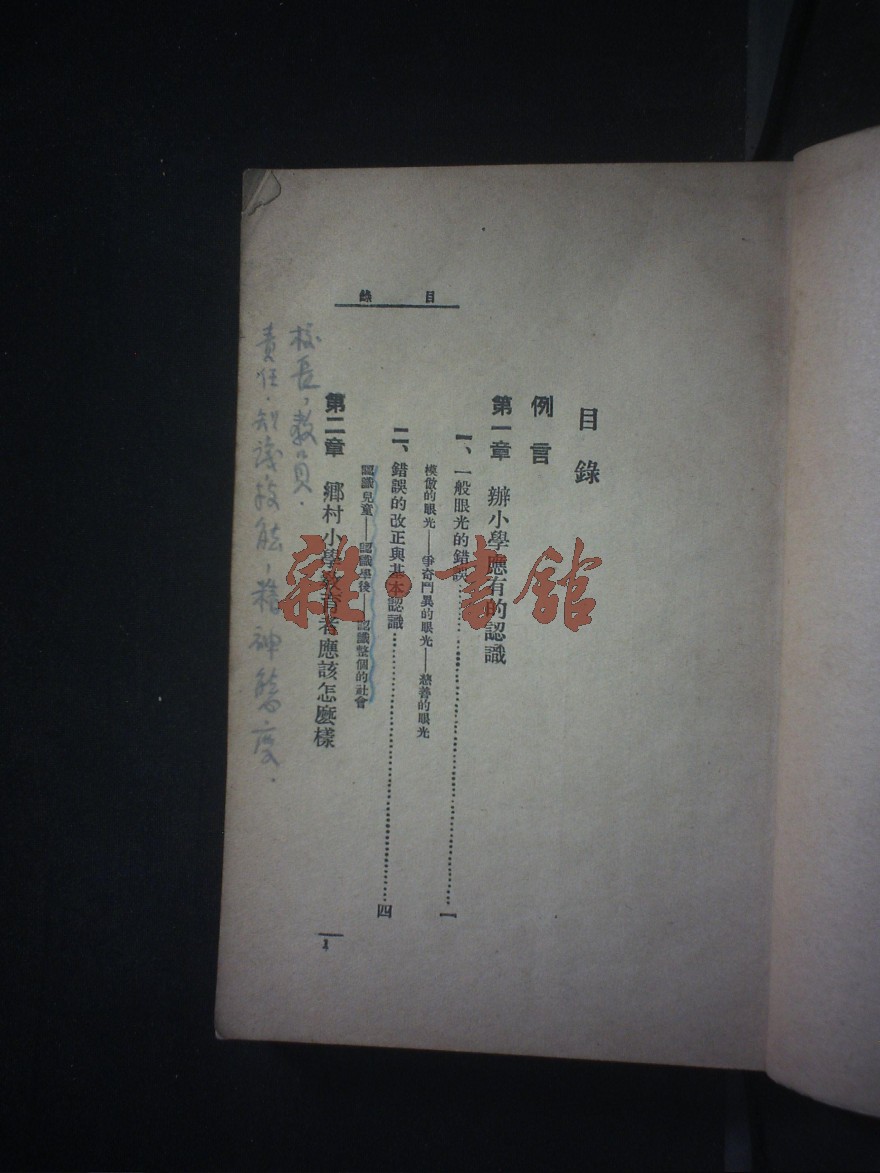 目錄
目錄
例言
第一章 辦小學應有的認識
一、一般眼光的錯誤……一
模倣的眼光——爭奇鬥異的眼光——慈善的眼光
二、錯誤的改正與基本認識……四
認識兒童——認識學後——認識整個的社會
第二章 鄉村小學教育者應該怎麼樣
校長，教員．
責任．知識技能，精神態度．
1
雜·書館